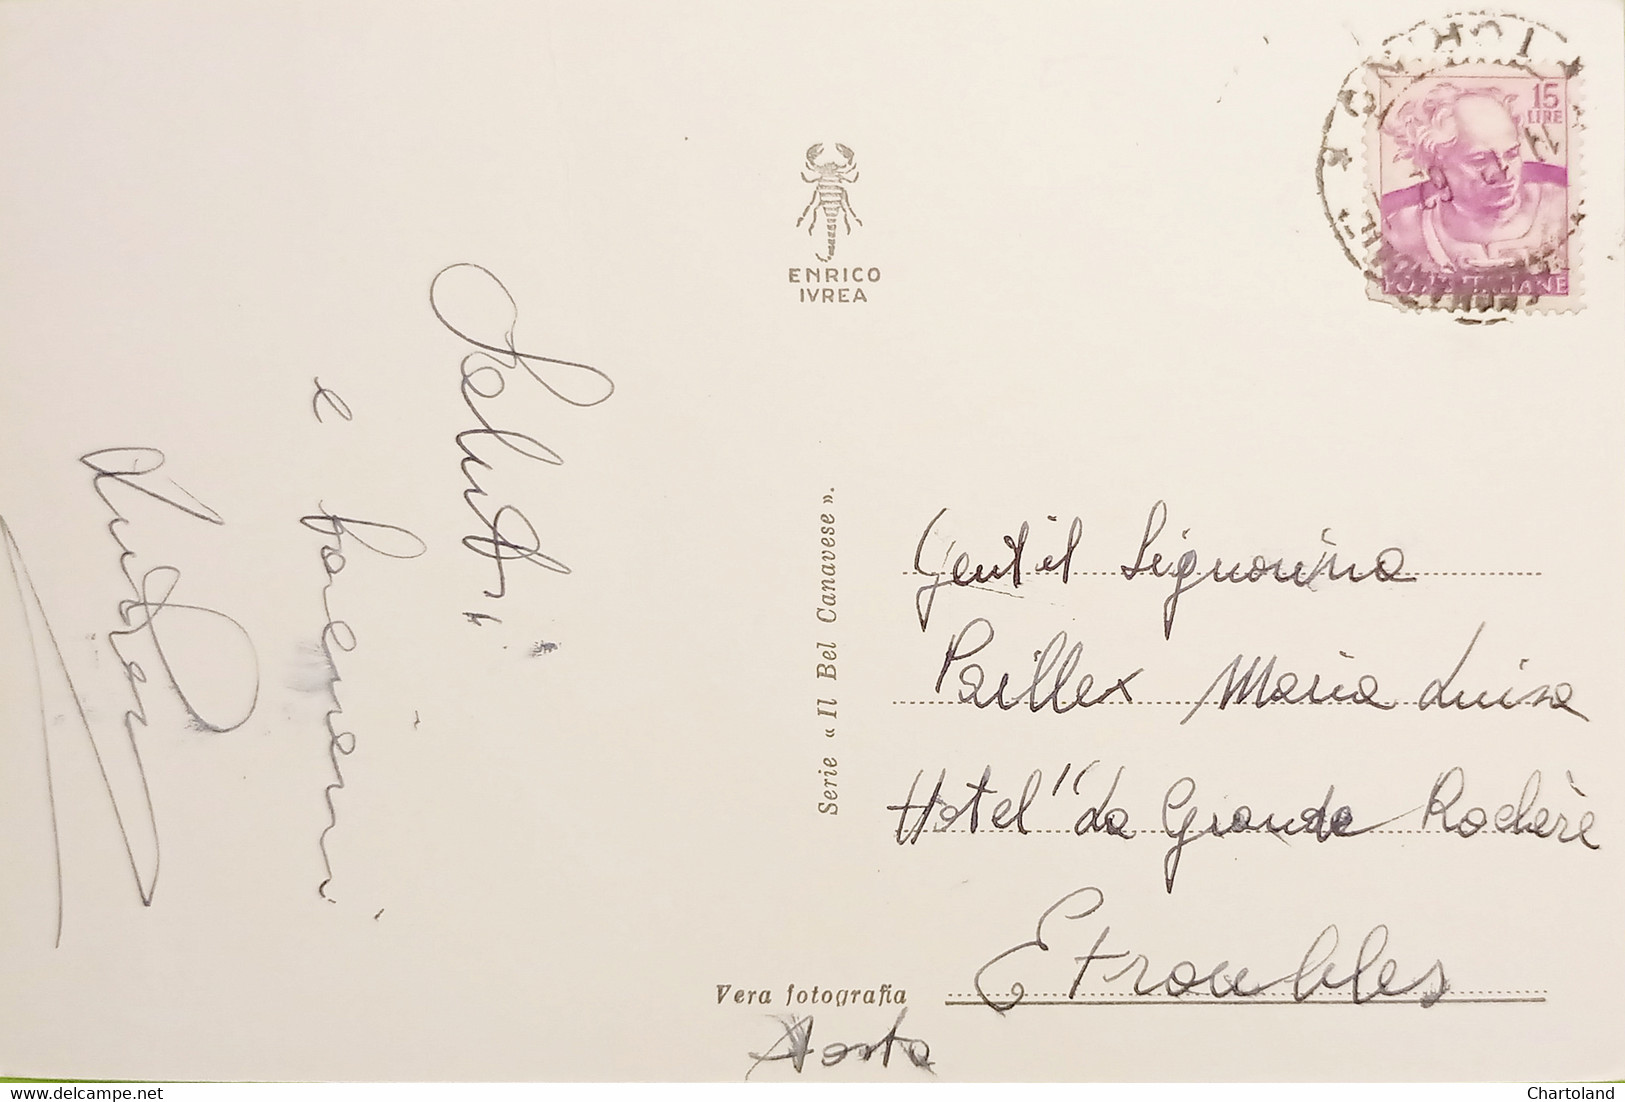 TORINO
15
LIRE
POSTE ITALIANE
ENRICO
IVREA
Saluti
e pensieri
Serie « Il Bel Canavese ».
Gentil Signorina
Paillex Maria Luisa
Hotel "La Grande Rochère
Etroubles
Vera fotografia
Aosta
delcampe.net
Chartoland